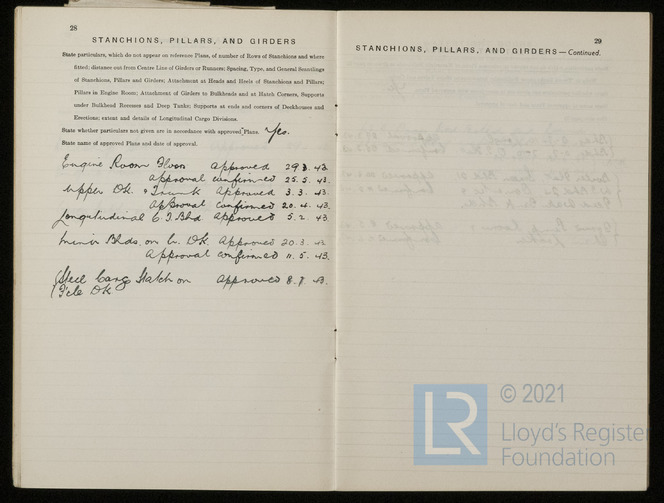 28
STANCHIONS, PILLARS, AND GIRDERS
State particulars, which do not appear on reference Plans, of number of Rows of Stanchions and where
fitted; distance out from Centre Line of Girders or Runners; Spacing, Type, and General Scantlings
of Stanchions, Pillars and Girders; Attachment at Heads and Heels of Stanchions and Pillars;
Pillars in Engine Room; Attachment of Girders to Bulkheads and at Hatch Corners, Supports
under Bulkhead Recesses and Deep Tanks; Supports at ends and corners of Deckhouses and
Erections; extent and details of Longitudinal Cargo Divisions.
State whether particulars not given are in accordance with approved Plans. Yes.
State name of approved Plans and date of approval.
Engine Room Floors Approved 29. 3. 43.
Approval confirmed 25. 5. 43.
Upper Dk. & Trunk Approved 3. 3. 43.
Approval confirmed 20. 4. 43.
Longitudinal O.T. Bhd. Approved 5. 2. 43.
Minor Bhds. on U. Dk. Approved 20. 3. 43
Approval confirmed 11. 5. 43.
Steel Cargo Hatch on Approved 8. 43.
F'cle Dk
29
STANCHIONS, PILLARS, AND GIRDERS—Continued.
LR
© 2021
Lloyd's Register
Foundation